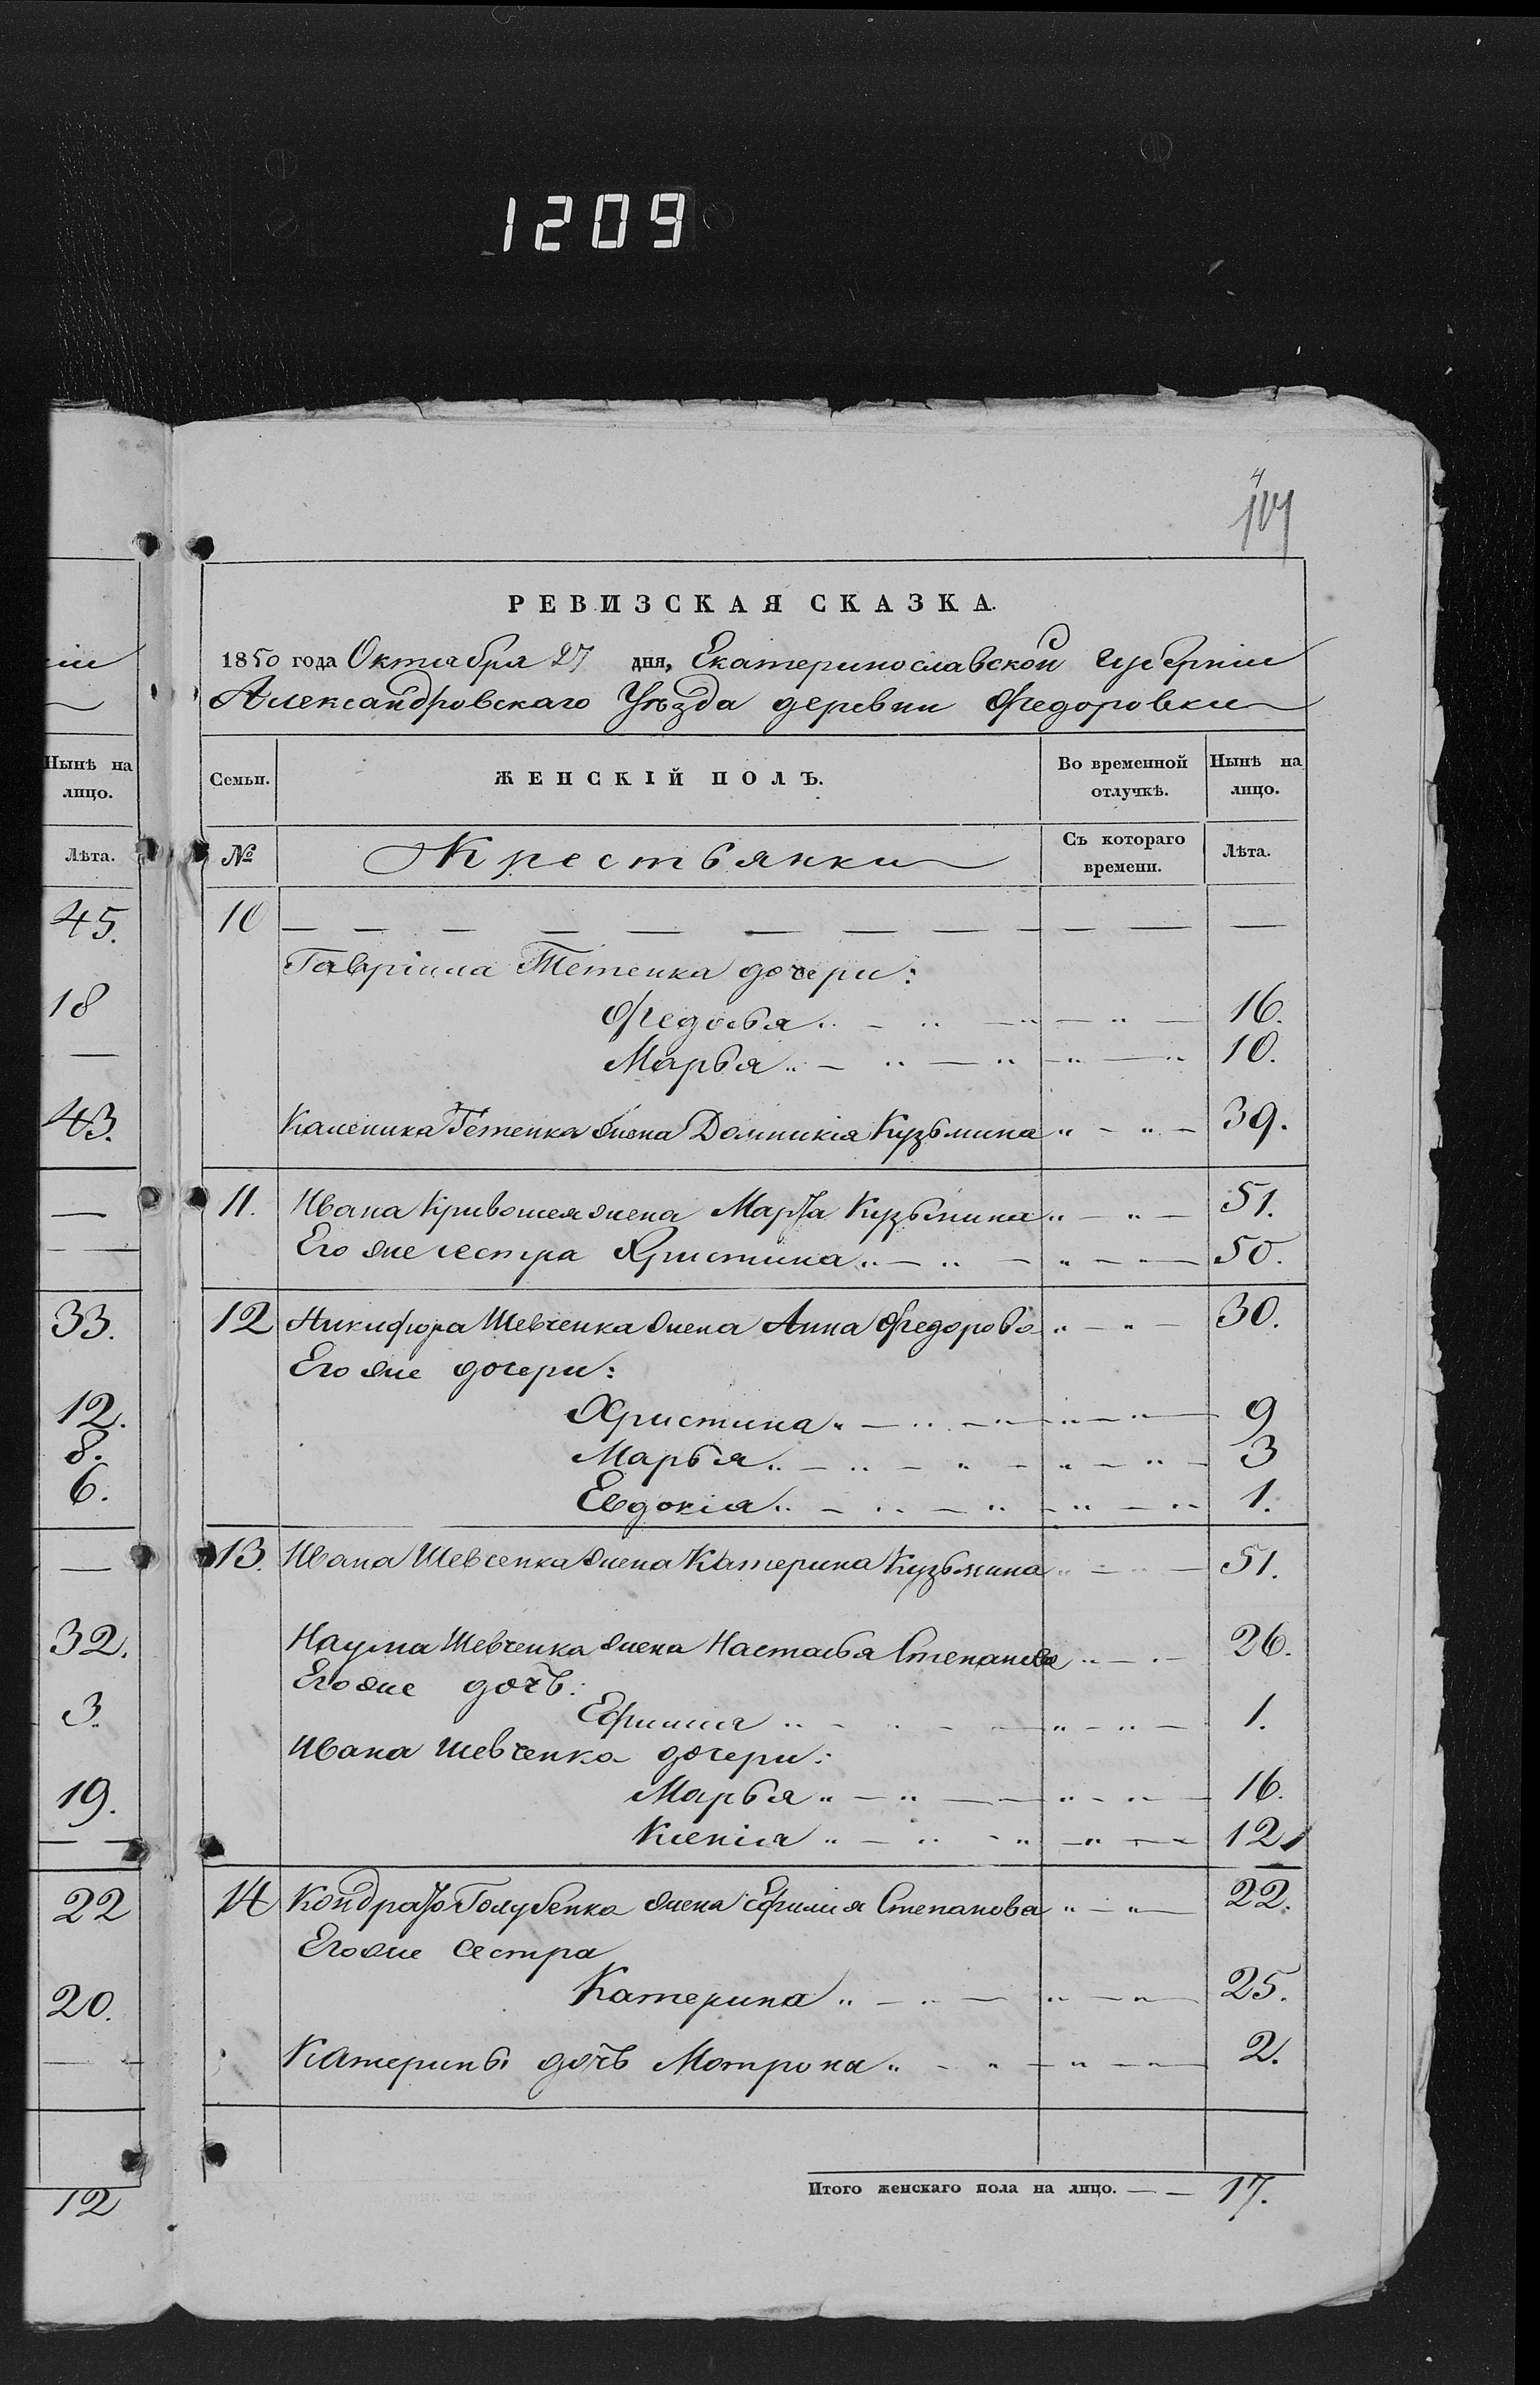 1209
4
РЕВИЗСКАЯ СКАЗКА.
1850 года Октября 27 дня, Екатеринославской Губерніи
Александровскаго Уѣзда деревни Федоровки
Семьи. ЖЕНСКІЙ ПОЛЪ. Во временной отлучкѣ. Нынѣ на лицо.
№ Крестьянки Съ котораго времени. Лѣта.
10 — — — — — — — — — — — —
Гавріила Тетенка дочери:
Федосья „ — „ — „ — „ — 16.
Марья „ — „ — „ — „ — „ 10.
Каленика Тетенка жена Домникія Кузьмина „ — „ — 39.
11. Ивана Кривошея жена Марѳа Кузьмина „ — „ — 51.
Его же сестра Христина „ — „ — „ — „ — 50.
12 Никифора Шевченка жена Анна Федорова „ — „ — 30.
Его же дочери:
Христина „ — „ — „ — „ — „ — 9
Марья „ — „ — „ — „ — „ — 3
Евдокія „ — „ — „ — „ — „ 1.
13. Ивана Шевченка жена Катерина Кузьмина „ — „ — 51.
Наума Шевченка жена Настасья Степанова „ — „ — 26.
Его же дочь:
Ефимія „ — „ — — „ — „ — 1.
Ивана Шевченка дочери:
Марья „ — „ — — „ — „ — 16.
Ксенія „ — „ — „ — „ — — 12
14 Кондрата Голубенка жена Ефимія Степанова „ — „ — 22.
Его же Сестра
Катерина „ — „ — „ — „ — 25.
Катерины дочь Мотрона „ — „ — „ — „ — 2.
Итого женскаго пола на лицо. — — 17.
ніи
Нынѣ на
лицо.
Лѣта.
45.
18
—
43.
—
— —
33.
12.
8.
6.
—
32.
3.
19.
— —
22
20.
— —
12